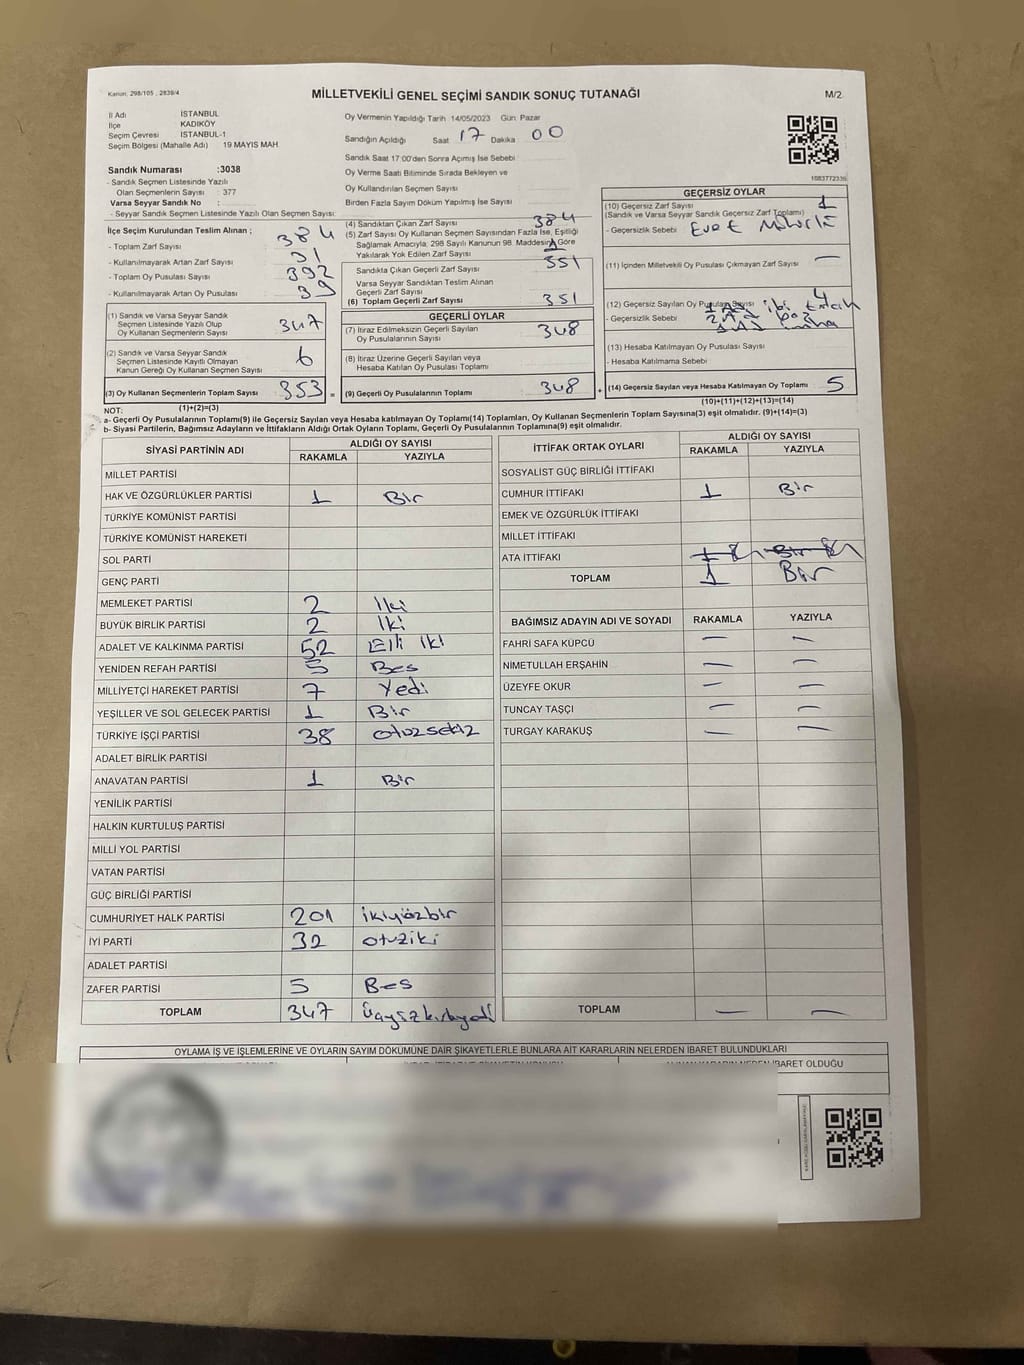 Kanun: 298/105 , 2839/4
MİLLETVEKİLİ GENEL SEÇİMİ SANDIK SONUÇ TUTANAĞI
M/2
İl Adı İSTANBUL
İlçe KADIKÖY
Seçim Çevresi İSTANBUL-1
Seçim Bölgesi (Mahalle Adı) 19 MAYIS MAH.
Oy Vermenin Yapıldığı Tarih 14/05/2023 Gün Pazar
Sandığın Açıldığı Saat 17 Dakika 00
Sandık Saat 17:00'den Sonra Açılmış İse Sebebi
Oy Verme Saati Bitiminde Sırada Bekleyen ve
Oy Kullandırılan Seçmen Sayısı
Birden Fazla Sayım Döküm Yapılmış İse Sayısı
Sandık Numarası :3038
- Sandık Seçmen Listesinde Yazılı
Olan Seçmenlerin Sayısı : 377
Varsa Seyyar Sandık No :
- Seyyar Sandık Seçmen Listesinde Yazılı Olan Seçmen Sayısı:
İlçe Seçim Kurulundan Teslim Alınan ;
- Toplam Zarf Sayısı : 384
- Kullanılmayarak Artan Zarf Sayısı : 31
- Toplam Oy Pusulası Sayısı : 392
- Kullanılmayarak Artan Oy Pusulası : 39
(1) Sandık ve Varsa Seyyar Sandık
Seçmen Listesinde Yazılı Olup
Oy Kullanan Seçmenlerin Sayısı 347
(2) Sandık ve Varsa Seyyar Sandık
Seçmen Listesinde Kayıtlı Olmayan
Kanun Gereği Oy Kullanan Seçmen Sayısı 6
(3) Oy Kullanan Seçmenlerin Toplam Sayısı 353 =
(1)+(2)=(3)
(4) Sandıktan Çıkan Zarf Sayısı 384
(5) Zarf Sayısı Oy Kullanan Seçmen Sayısından Fazla İse, Eşitliği
Sağlamak Amacıyla, 298 Sayılı Kanunun 98. Maddesine Göre
Yakılarak Yok Edilen Zarf Sayısı 1
Sandıkta Çıkan Geçerli Zarf Sayısı 351
Varsa Seyyar Sandıktan Teslim Alınan
Geçerli Zarf Sayısı
(6) Toplam Geçerli Zarf Sayısı 351
GEÇERLİ OYLAR
(7) İtiraz Edilmeksizin Geçerli Sayılan
Oy Pusulalarının Sayısı 348
(8) İtiraz Üzerine Geçerli Sayılan veya
Hesaba Katılan Oy Pusulası Toplamı
(9) Geçerli Oy Pusulalarının Toplamı 348 +
1083772335
GEÇERSİZ OYLAR
(10) Geçersiz Zarf Sayısı 1
(Sandık ve Varsa Seyyar Sandık Geçersiz Zarf Toplamı)
- Geçersizlik Sebebi Evet
(11) İçinden Milletvekili Oy Pusulası Çıkmayan Zarf Sayısı —
(12) Geçersiz Sayılan Oy Pusulası Sayısı 4
- Geçersizlik Sebebi
(13) Hesaba Katılmayan Oy Pusulası Sayısı
- Hesaba Katılmama Sebebi
(14) Geçersiz Sayılan veya Hesaba Katılmayan Oy Toplamı 5
(10)+(11)+(12)+(13)=(14)
NOT:
a- Geçerli Oy Pusulalarının Toplamı(9) ile Geçersiz Sayılan veya Hesaba katılmayan Oy Toplamı(14) Toplamları, Oy Kullanan Seçmenlerin Toplam Sayısına(3) eşit olmalıdır. (9)+(14)=(3)
b- Siyasi Partilerin, Bağımsız Adayların ve İttifakların Aldığı Ortak Oyların Toplamı, Geçerli Oy Pusulalarının Toplamına(9) eşit olmalıdır.
SİYASİ PARTİNİN ADI ALDIĞI OY SAYISI
RAKAMLA YAZIYLA
MİLLET PARTİSİ
HAK VE ÖZGÜRLÜKLER PARTİSİ 1 Bir
TÜRKİYE KOMÜNİST PARTİSİ
TÜRKİYE KOMÜNİST HAREKETİ
SOL PARTİ
GENÇ PARTİ
MEMLEKET PARTİSİ 2 İki
BÜYÜK BİRLİK PARTİSİ 2 İki
ADALET VE KALKINMA PARTİSİ 52 Elli iki
YENİDEN REFAH PARTİSİ 5 Bes
MİLLİYETÇİ HAREKET PARTİSİ 7 Yedi
YEŞİLLER VE SOL GELECEK PARTİSİ 1 Bir
TÜRKİYE İŞÇİ PARTİSİ 38 otuzsekiz
ADALET BİRLİK PARTİSİ
ANAVATAN PARTİSİ 1 Bir
YENİLİK PARTİSİ
HALKIN KURTULUŞ PARTİSİ
MİLLİ YOL PARTİSİ
VATAN PARTİSİ
GÜÇ BİRLİĞİ PARTİSİ
CUMHURİYET HALK PARTİSİ 201 ikiyüzbir
İYİ PARTİ 32 otuziki
ADALET PARTİSİ
ZAFER PARTİSİ 5 Bes
TOPLAM 347
İTTİFAK ORTAK OYLARI ALDIĞI OY SAYISI
RAKAMLA YAZIYLA
SOSYALİST GÜÇ BİRLİĞİ İTTİFAKI
CUMHUR İTTİFAKI 1 Bir
EMEK VE ÖZGÜRLÜK İTTİFAKI
MİLLET İTTİFAKI
ATA İTTİFAKI
TOPLAM 1 Bir
BAĞIMSIZ ADAYIN ADI VE SOYADI RAKAMLA YAZIYLA
FAHRİ SAFA KÜPCÜ — —
NİMETULLAH ERŞAHİN — —
ÜZEYFE OKUR — —
TUNCAY TAŞÇI — —
TURGAY KARAKUŞ — —
TOPLAM — —
OYLAMA İŞ VE İŞLEMLERİNE VE OYLARIN SAYIM DÖKÜMÜNE DAİR ŞİKAYETLERLE BUNLARA AİT KARARLARIN NELERDEN İBARET BULUNDUKLARI
İBARET OLDUĞU